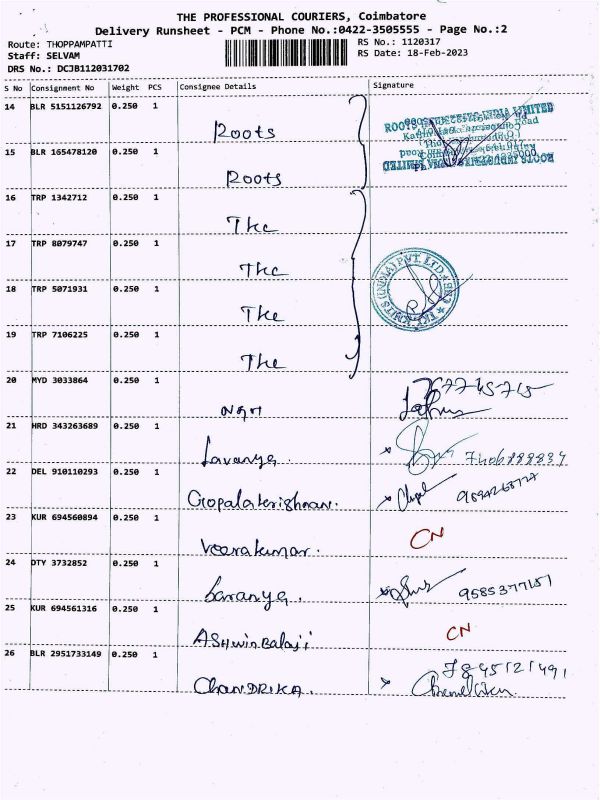 THE PROFESSIONAL COURIERS, Coimbatore
Delivery Runsheet - PCM - Phone No.:0422-3505555 - Page No.:2
Route: THOPPAMPATTI
RS No.: 1120317
Staff: SELVAM
RS Date: 18-Feb-2023
DRS No.: DCJB112031702
S No Consignment No Weight PCS Consignee Details Signature
14 BLR 5151126792 0.250 1
Roots
15 BLR 165478120 0.250 1
Roots
16 TRP 1342712 0.250 1
The
17 TRP 8079747 0.250 1
The
18 TRP 5071931 0.250 1
The
19 TRP 7106225 0.250 1
The
20 MYD 3033864 0.250 1
21 HRD 343263689 0.250 1
Lavanya.
22 DEL 910110293 0.250 1
Gopalakrishnan.
23 KUR 694560894 0.250 1
Veerakumar. CN
24 DTY 3732852 0.250 1
Saranya.
25 KUR 694561316 0.250 1
AShwinBalaji CN
26 BLR 2951733149 0.250 1
7845121491
ChanDRIKA.